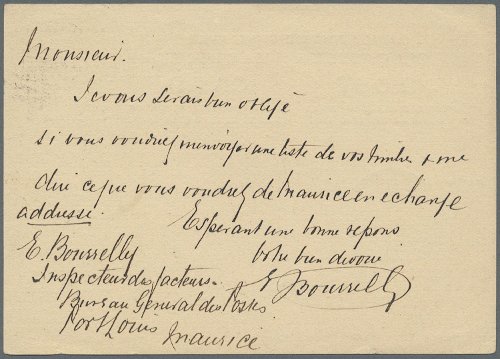 Monsieur.
Je vous serais bien obligé
si vous voudriez m'envoyer une liste de vos timbres & me
dire ce que vous voudriez de Maurice en echange
addresse. Esperant une bonne repons
E. Bourselly votre bien devoué
Inspecteur des facteurs. E Bourselly
Bureau General des Postes
Port Louis
Maurice